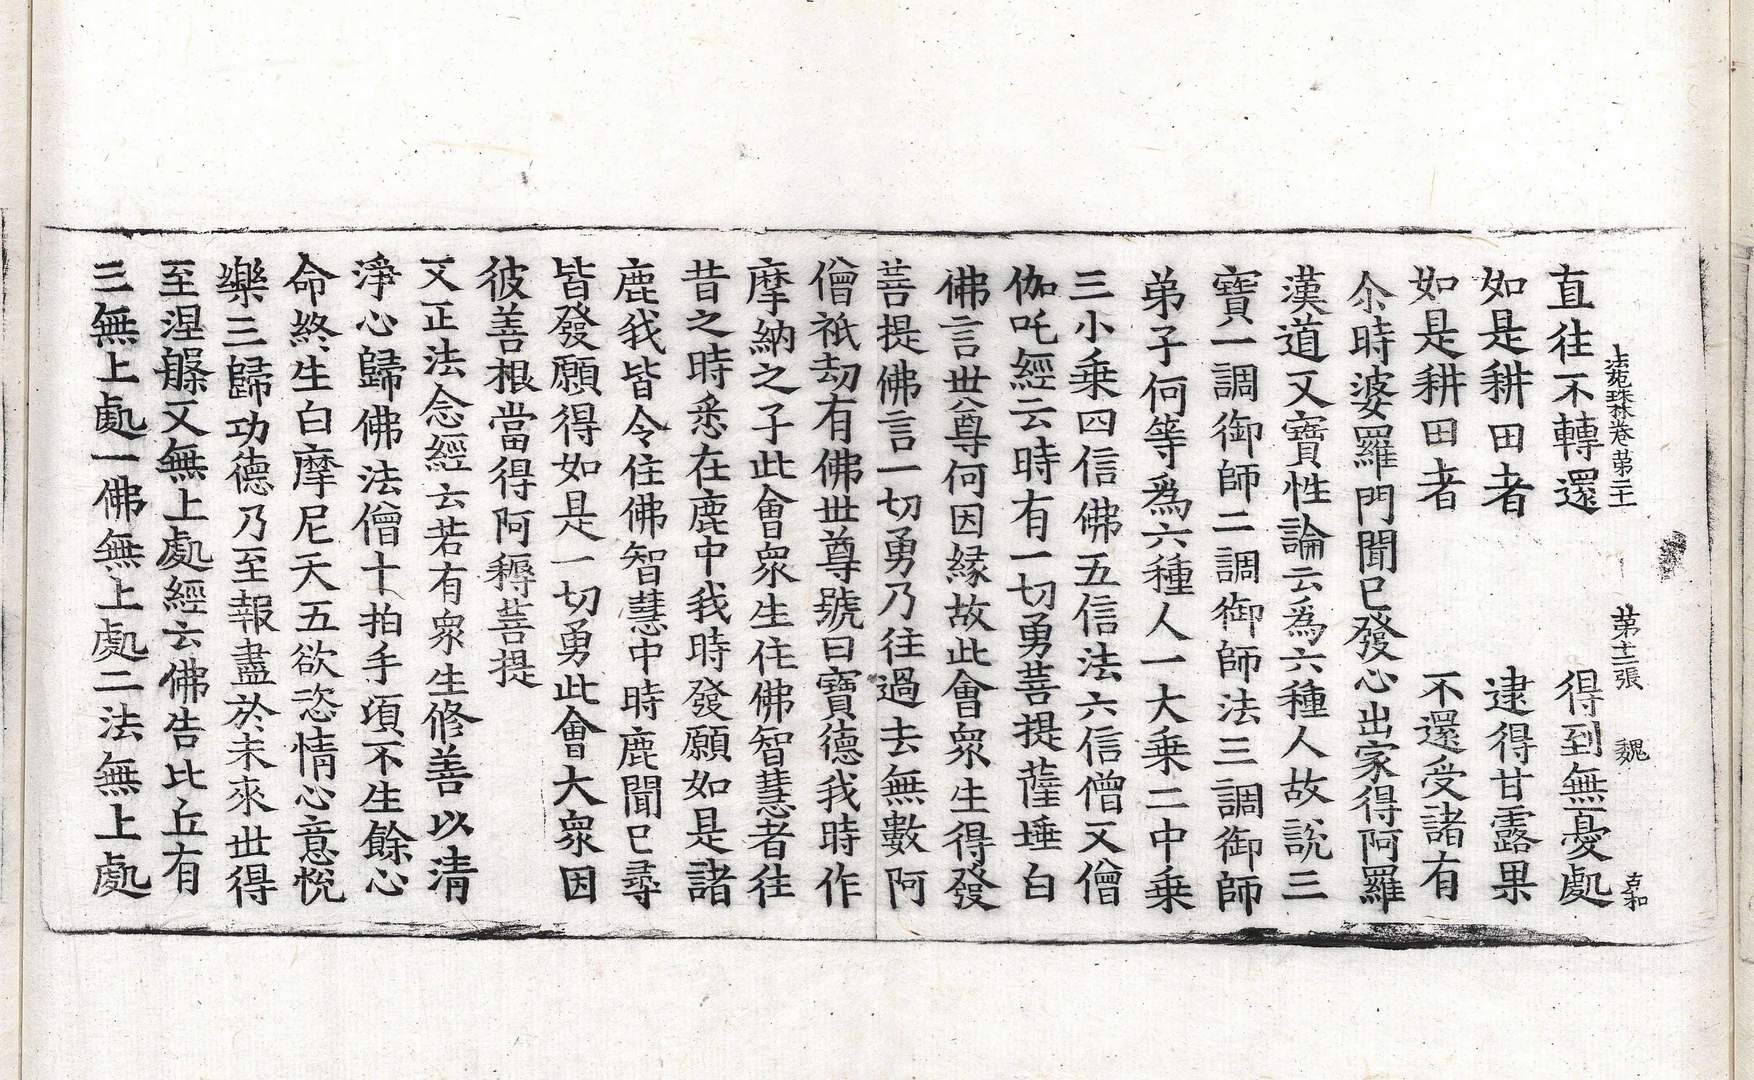 法苑珠林卷第二十 第十二張 魏 吉和
直往不轉還 得到無憂處
如是耕田者 逮得甘露果
如是耕田者 不還受諸有
尒時婆羅門聞已發心出家得阿羅
漢道又寶性論云為六種人故說三
寶一調御師二調御師法三調御師
弟子何等為六種人一大乗二中乗
三小乗四信佛五信法六信僧又僧
伽吒經云時有一切勇菩提薩埵白
佛言世尊何因緣故此會衆生得發
菩提佛言一切勇乃往過去無數阿
僧祇劫有佛世尊號曰寶德我時作
摩納之子此會衆生住佛智慧者往
昔之時悉在鹿中我時發願如是諸
鹿我皆令住佛智慧中時鹿聞已尋
皆發願得如是一切勇此會大衆因
彼善根當得阿耨菩提
又正法念經云若有衆生修善以清
淨心歸佛法僧十拍手頃不生餘心
命終生白摩尼天五欲恣情心意悅
樂三歸功德乃至報盡於未來世得
至涅槃又無上處經云佛告比丘有
三無上處一佛無上處二法無上處